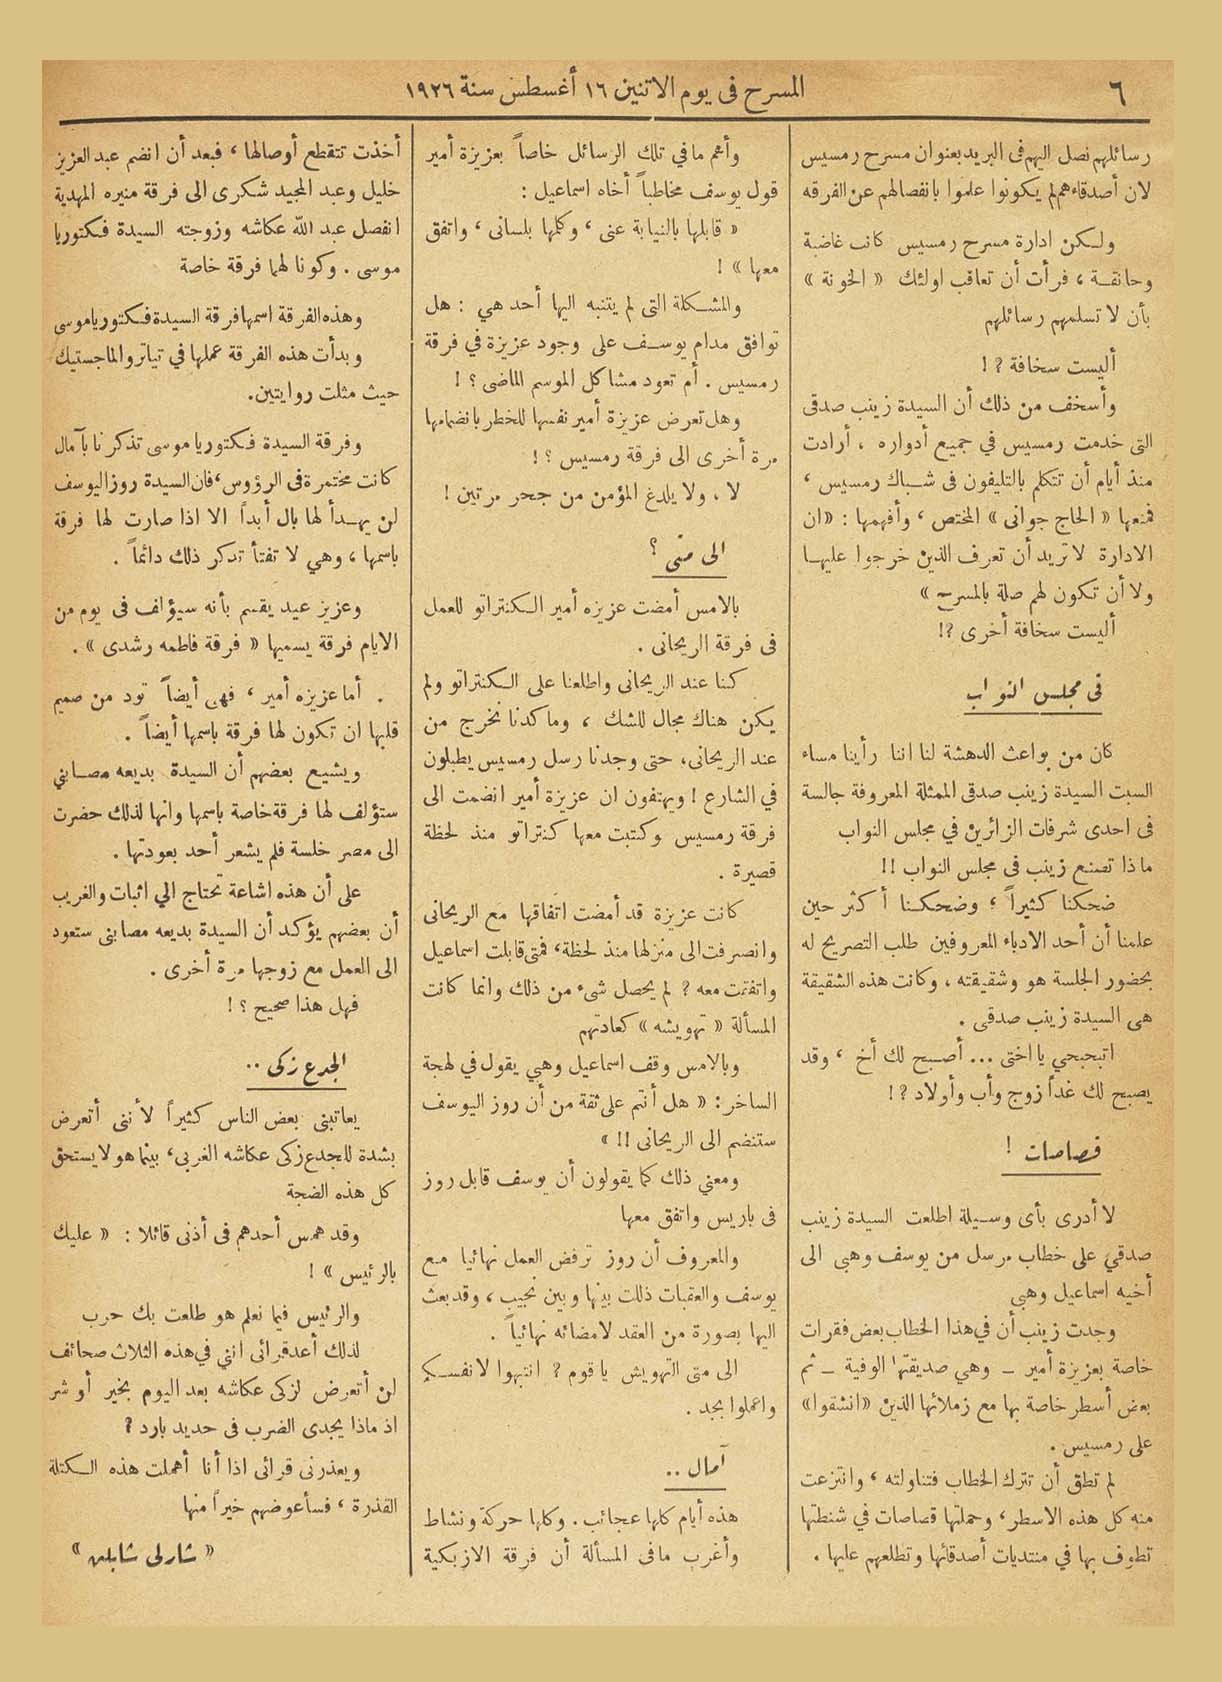 ٦
المسرح فى يوم الاتنين ١٦ أغسطس سنة ١٩٢٦
رسائلهم نصل اليهم فى البريد بعنوان مسرح رمسيس
لان أصدقاءهم لم يكونوا علموا بانفصالهم عن الفرقه
ولكن ادارة مسرح رمسيس كانت غاضبة
وحانقة ، فرأت أن تعاقب اولئك « الخونة »
بأن لا تسلمهم رسائلهم
أليست سخافة ؟ !
وأسخف من ذلك أن السيدة زينب صدقى
التى خدمت رمسيس في جميع أدواره ، أرادت
منذ أيام أن تتكلم بالتليفون فى شباك رمسيس ،
فمنعها « الحاج جوانى » المختص ، وأفهمها : « ان
الادارة لا تريد أن تعرف الذين خرجوا عليها
ولا أن تكون لهم صلة بالمسرح »
أليست سخافة أخرى ؟!
فى مجلس النواب
كان من بواعث الدهشة لنا اننا رأينا مساء
السبت السيدة زينب صدقى الممثلة المعروفة جالسة
فى احدى شرفات الزائرين في مجلس النواب
ماذا تصنع زينب فى مجلس النواب !!
ضحكنا كثيراً ، وضحكنا أكثر حين
علمنا أن أحد الادباء المعروفين طلب التصريح له
بحضور الجلسة هو وشقيقته ، وكانت هذه الشقيقة
هى السيدة زينب صدقى .
اتبحبحي يا اختى ... أصبح لك أخ ، وقد
يصبح لك غداً زوج وأب وأولاد ؟!
قصاصات !
لا أدرى بأى وسيلة اطلعت السيدة زينب
صدقي على خطاب مرسل من يوسف وهبى الى
أخيه اسماعيل وهبي
وجدت زينب أن في هذا الخطاب بعض فقرات
خاصة بعزيزة أمير ـ وهي صديقتها الوفية ـ ثم
بعض أسطر خاصة بها مع زملائها الذين « انشقوا »
على رمسيس .
لم تطق أن تترك الخطاب فتناولته ، وانتزعت
منه كل هذه الاسطر ، وحملتها قصاصات في شنطتها
تطوف بها في منتديات أصدقائها وتطلعهم عليها .
وأهم ما في تلك الرسائل خاصاً بعزيزة أمير
قول يوسف مخاطباً أخاه اسماعيل :
« قابلها بالنيابة عنى ، وكلمها بلسانى ، واتفق
معها » !
والمشكلة التى لم يتنبه اليها أحد هي : هل
توافق مدام يوسف على وجود عزيزة في فرقة
رمسيس . أم تعود مشاكل الموسم الماضى ؟ !
وهل تعرض عزيزة أمير نفسها للخطر بانضمامها
مرة أخرى الى فرقة رمسيس ؟ !
لا ، ولا يلدغ المؤمن من جحر مرتين !
الى متى ؟
بالامس أمضت عزيزه أمير الكنتراتو للعمل
فى فرقة الريحانى .
كنا عند الريحانى واطلعنا على الكنتراتو ولم
يكن هناك مجال للشك ، وما كدنا نخرج من
عند الريحانى ، حتى وجدنا رسل رمسيس يطبلون
في الشارع ! ويهتفون ان عزيزة أمير انضمت الى
فرقة رمسيس وكتبت معها كنتراتو منذ لحظة
قصيرة .
كانت عزيزة قد أمضت اتفاقها مع الريحانى
وانصرفت الى منزلها منذ لحظة ، فمتى قابلت اسماعيل
واتفقت معه ؟ لم يحصل شىء من ذلك وانما كانت
المسألة « تهويشه » كعادتهم
وبالامس وقف اسماعيل وهبي يقول في لهجة
الساخر : « هل أنتم على ثقة من أن روز اليوسف
ستنضم الى الريحانى !! »
ومعني ذلك كما يقولون أن يوسف قابل روز
فى باريس واتفق معها
والمعروف أن روز ترفض العمل نهائيا مع
يوسف والعقبات ذللت بينها وبين نجيب ، وقد بعث
اليها بصورة من العقد لامضائه نهائياً .
الى متى التهويش يا قوم ؟ انتبهوا لانفسكم
واعملوا بجد .
آمال ..
هذه أيام كلها عجائب . وكلها حركة ونشاط
وأغرب ما في المسألة أن فرقة الازبكية
أخذت تتقطع أوصالها ، فبعد أن انضم عبد العزيز
خليل وعبد المجيد شكرى الى فرقة منيره المهدية
انفصل عبد الله عكاشه وزوجته السيدة فكتوريا
موسى . وكونا لهما فرقة خاصة
وهذه الفرقة اسمها فرقة السيدة فكتوريا موسى
وبدأت هذه الفرقة عملها في تياترو الماجستيك
حيث مثلت روايتين.
وفرقة السيدة فكتوريا موسى تذكرنا بآمال
كانت مختمرة فى الرؤوس ، فان السيدة روز اليوسف
لن يهدأ لها بال أبداً الا اذا صارت لها فرقة
باسمها ، وهي لا تفتأ تذكر ذلك دائماً .
وعزيز عيد يقسم بأنه سيؤلف فى يوم من
الايام فرقة يسميها « فرقة فاطمه رشدى » .
. أما عزيزه أمير ، فهى أيضاً تود من صميم
قلبها ان تكون لها فرقة باسمها أيضاً .
ويشيع بعضهم أن السيدة بديعه مصابني
ستؤلف لها فرقة خاصة باسمها وانها لذلك حضرت
الى مصر خلسة فلم يشعر أحد بعودتها .
على أن هذه اشاعة تحتاج الي اثبات والغريب
أن بعضهم يؤكد أن السيدة بديعه مصابنى ستعود
الى العمل مع زوجها مرة أخرى .
فهل هذا صحيح ؟ !
الجدع زكى ..
يعاتبنى بعض الناس كثيراً لأننى أتعرض
بشدة للجدع زكى عكاشه الغربى ، بينما هو لا يستحق
كل هذه الضجة
وقد همس أحدهم فى أذنى قائلا : « عليك
بالرئيس » !
والرئيس فيما نعلم هو طلعت بك حرب
لذلك أعد قرائى انني في هذه الثلاث صحائف
لن أتعرض لزكى عكاشه بعد اليوم بخير أو شر
اذ ماذا يجدى الضرب فى حديد بارد ؟
ويعذرنى قرائى اذا أنا أهملت هذه الكتلة
القذرة ، فسأعوضهم خيراً منها
« شارلى شابلن »